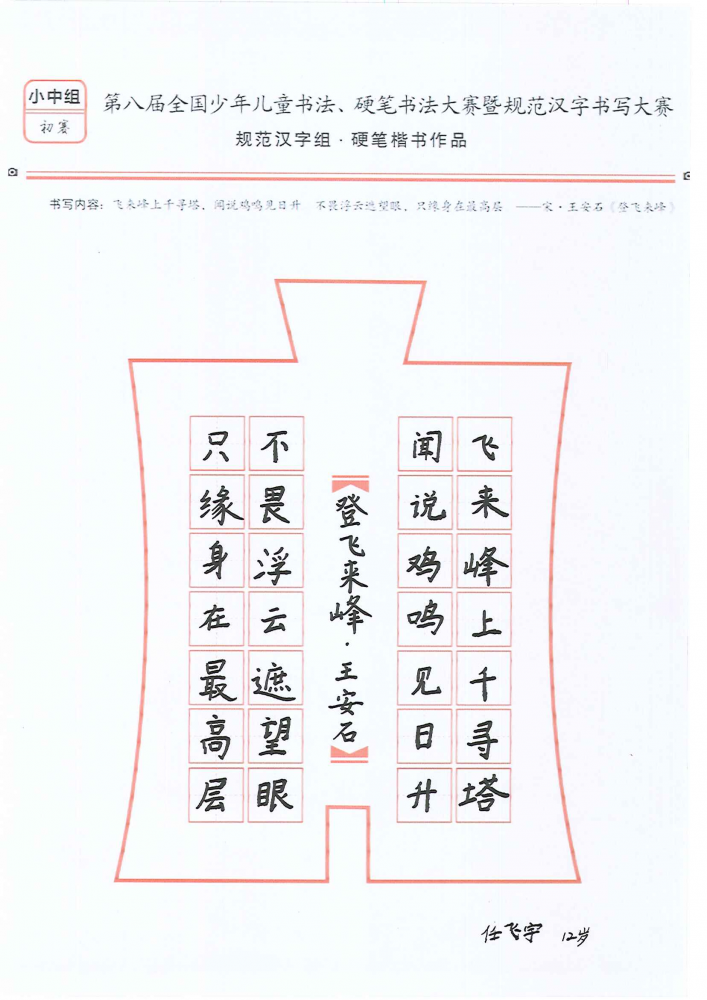 小中组
初赛
第八届全国少年儿童书法、硬笔书法大赛暨规范汉字书写大赛
规范汉字组·硬笔楷书作品
书写内容：飞来峰上千寻塔，闻说鸡鸣见日升 不畏浮云遮望眼，只缘身在最高层 ——宋·王安石《登飞来峰》
飞来峰上千寻塔
闻说鸡鸣见日升
登飞来峰·王安石
不畏浮云遮望眼
只缘身在最高层
任飞宇 12岁